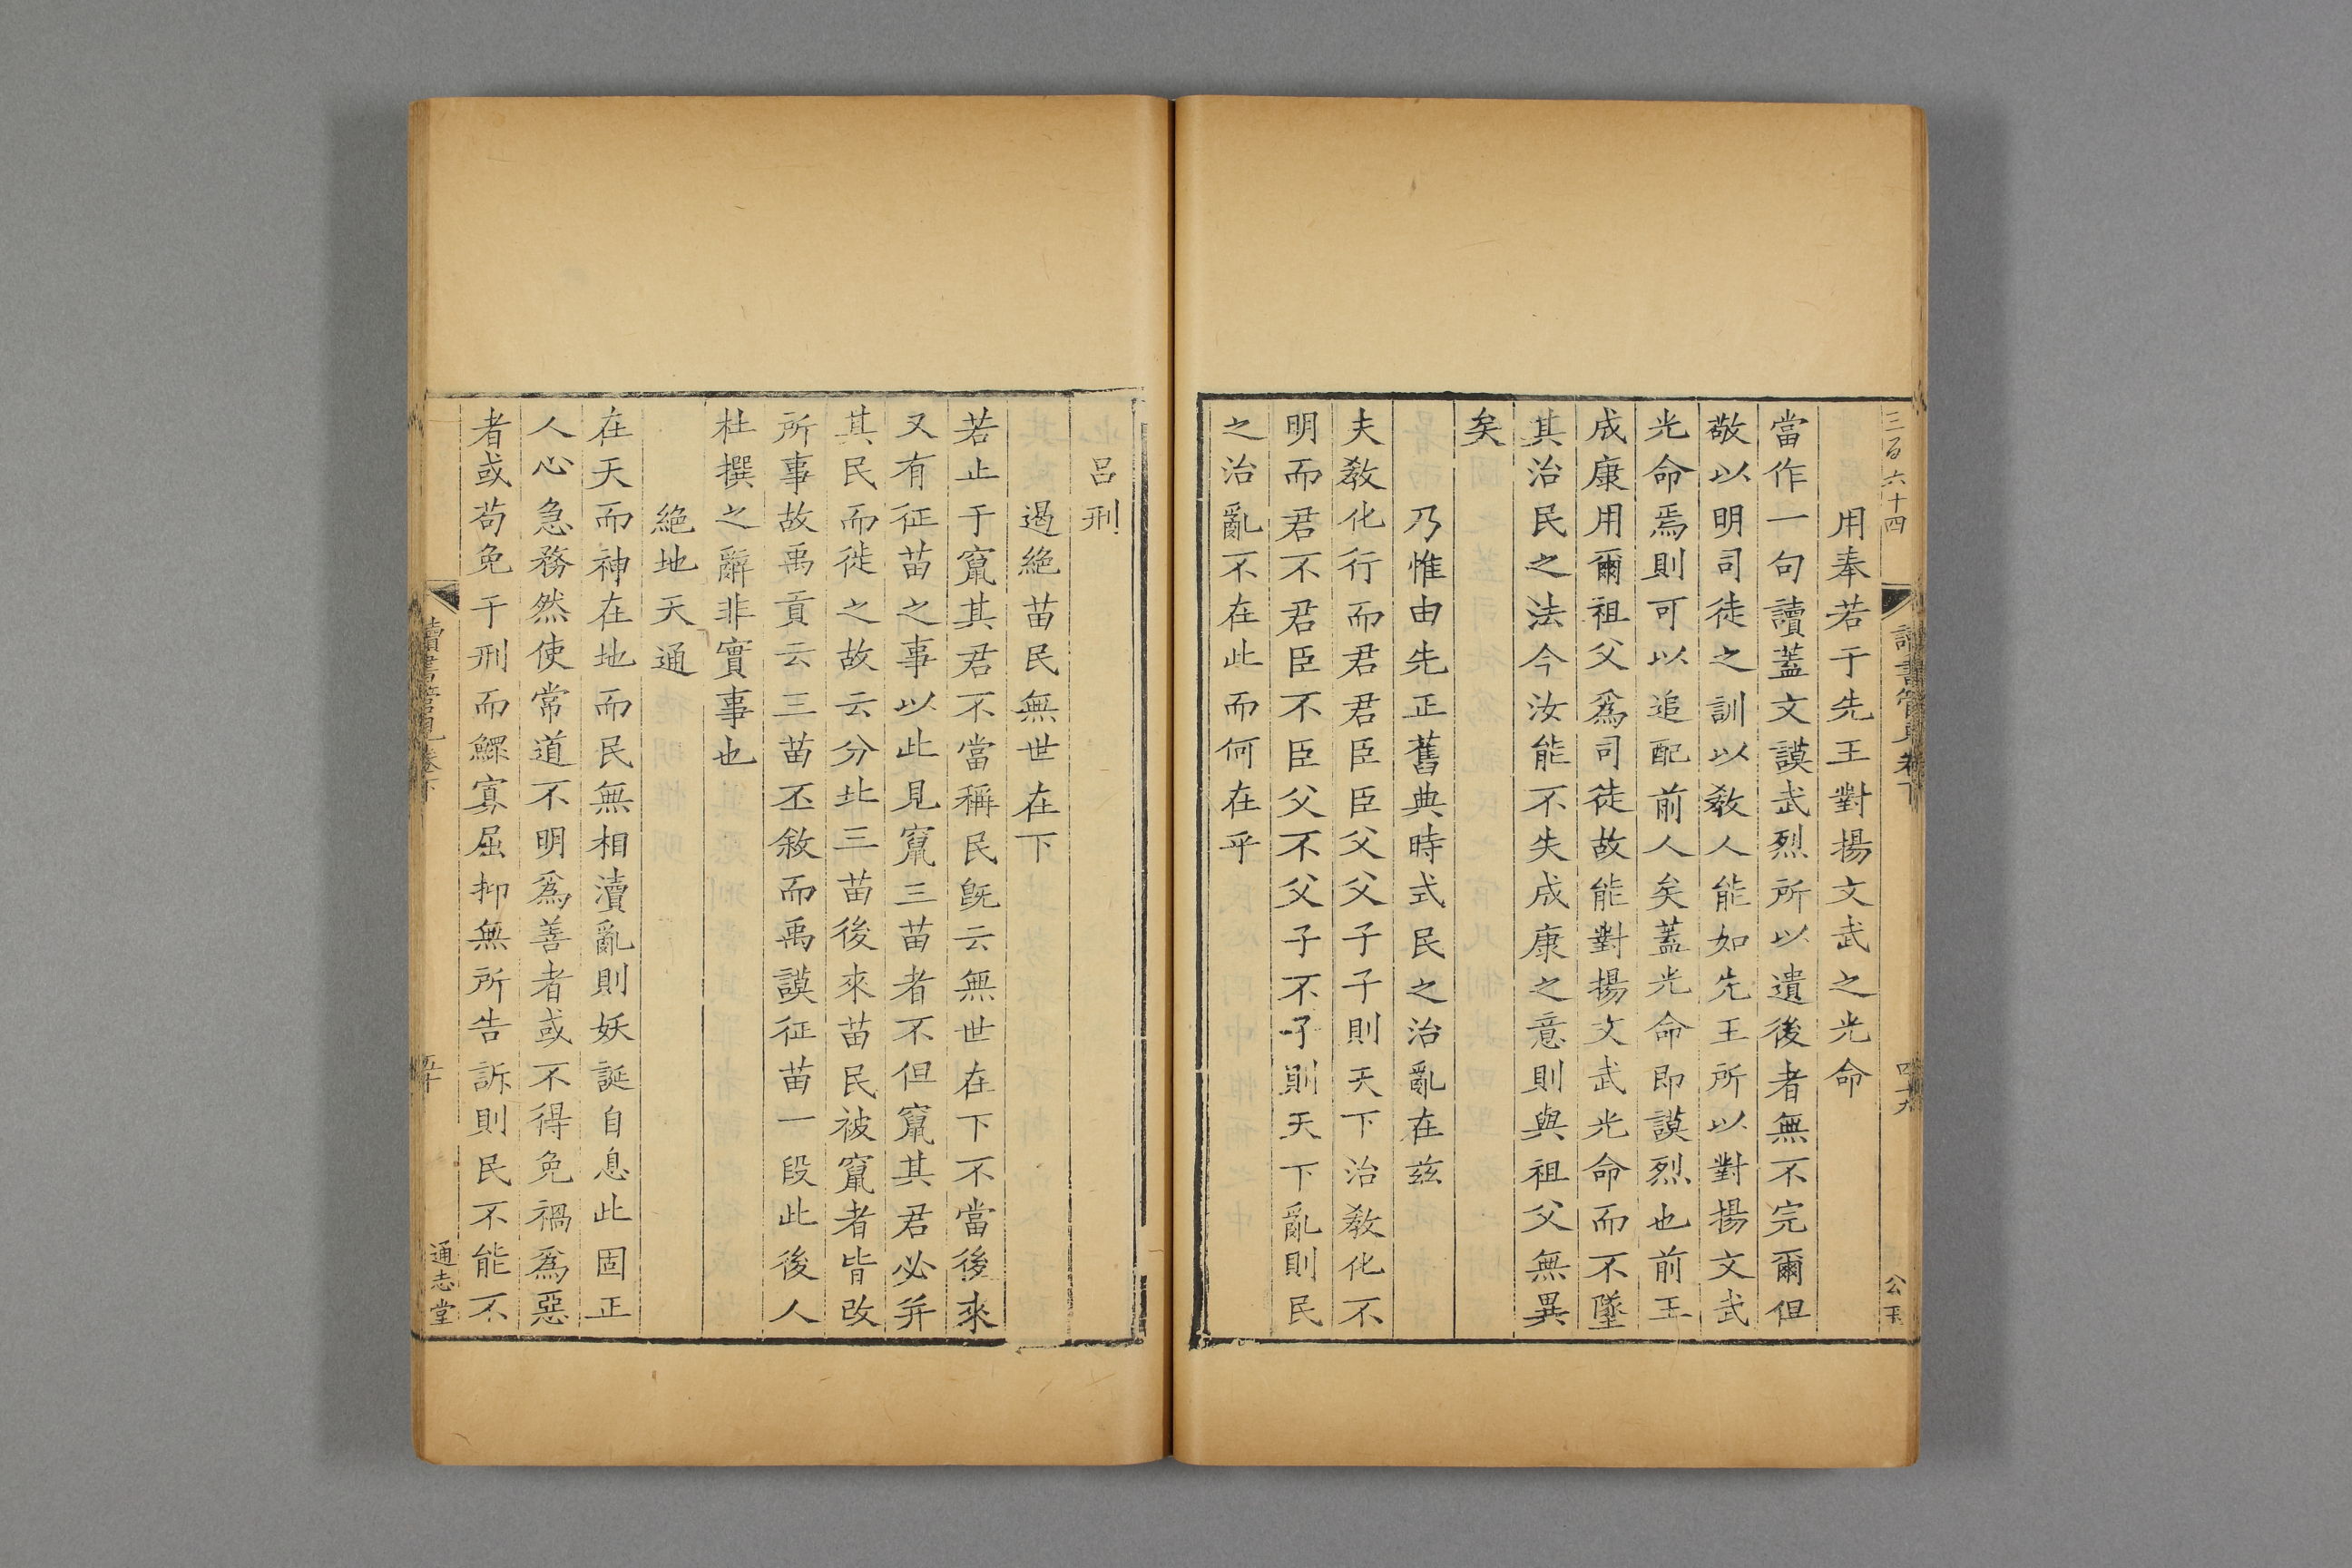 三百六十四
讀書管見卷下
四十九
公玉
用奉若于先王對揚文武之光命
當作一句讀蓋文謨武烈所以遺後者無不完爾但
敬以明司徒之訓以敎人能如先王所以對揚文武
光命焉則可以追配前人矣蓋光命即謨烈也前王
成康用爾祖父爲司徒故能對揚文武光命而不墜
其治民之法今汝能不失成康之意則與祖父無異
矣
乃惟由先正舊典時式民之治亂在茲
夫敎化行而君君臣臣父父子子則天下治敎化不
明而君不君臣不臣父不父子不子則天下亂則民
之治亂不在此而何在乎
呂刑
遏絶苗民無世在下
若止于竄其君不當稱民旣云無世在下不當後來
又有征苗之事以此見竄三苗者不但竄其君必并
其民而徙之故云分北三苗後來苗民被竄者皆改
所事故禹貢云三苗丕敘而禹謨征苗一段此後人
杜撰之辭非實事也
絶地天通
在天而神在地而民無相瀆亂則妖誕自息此固正
人心急務然使常道不明爲善者或不得免禍爲惡
者或苟免于刑而鰥寡屈抑無所告訴則民不能不
讀書管見卷下
五十
通志堂